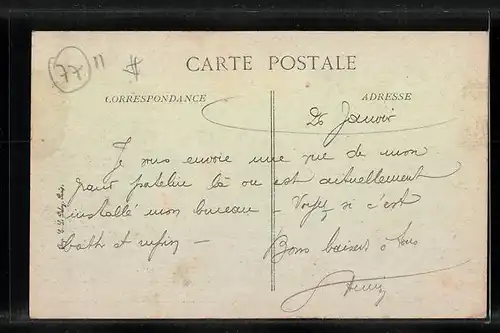 77 11
CARTE POSTALE
CORRESPONDANCE
ADRESSE
26 Janvier
Je vous envoie une vue de mon
là ou est actuellement
installé mon bureau - Voyez si c'est
bath et rupin -
Bons baisers à tous
Henri